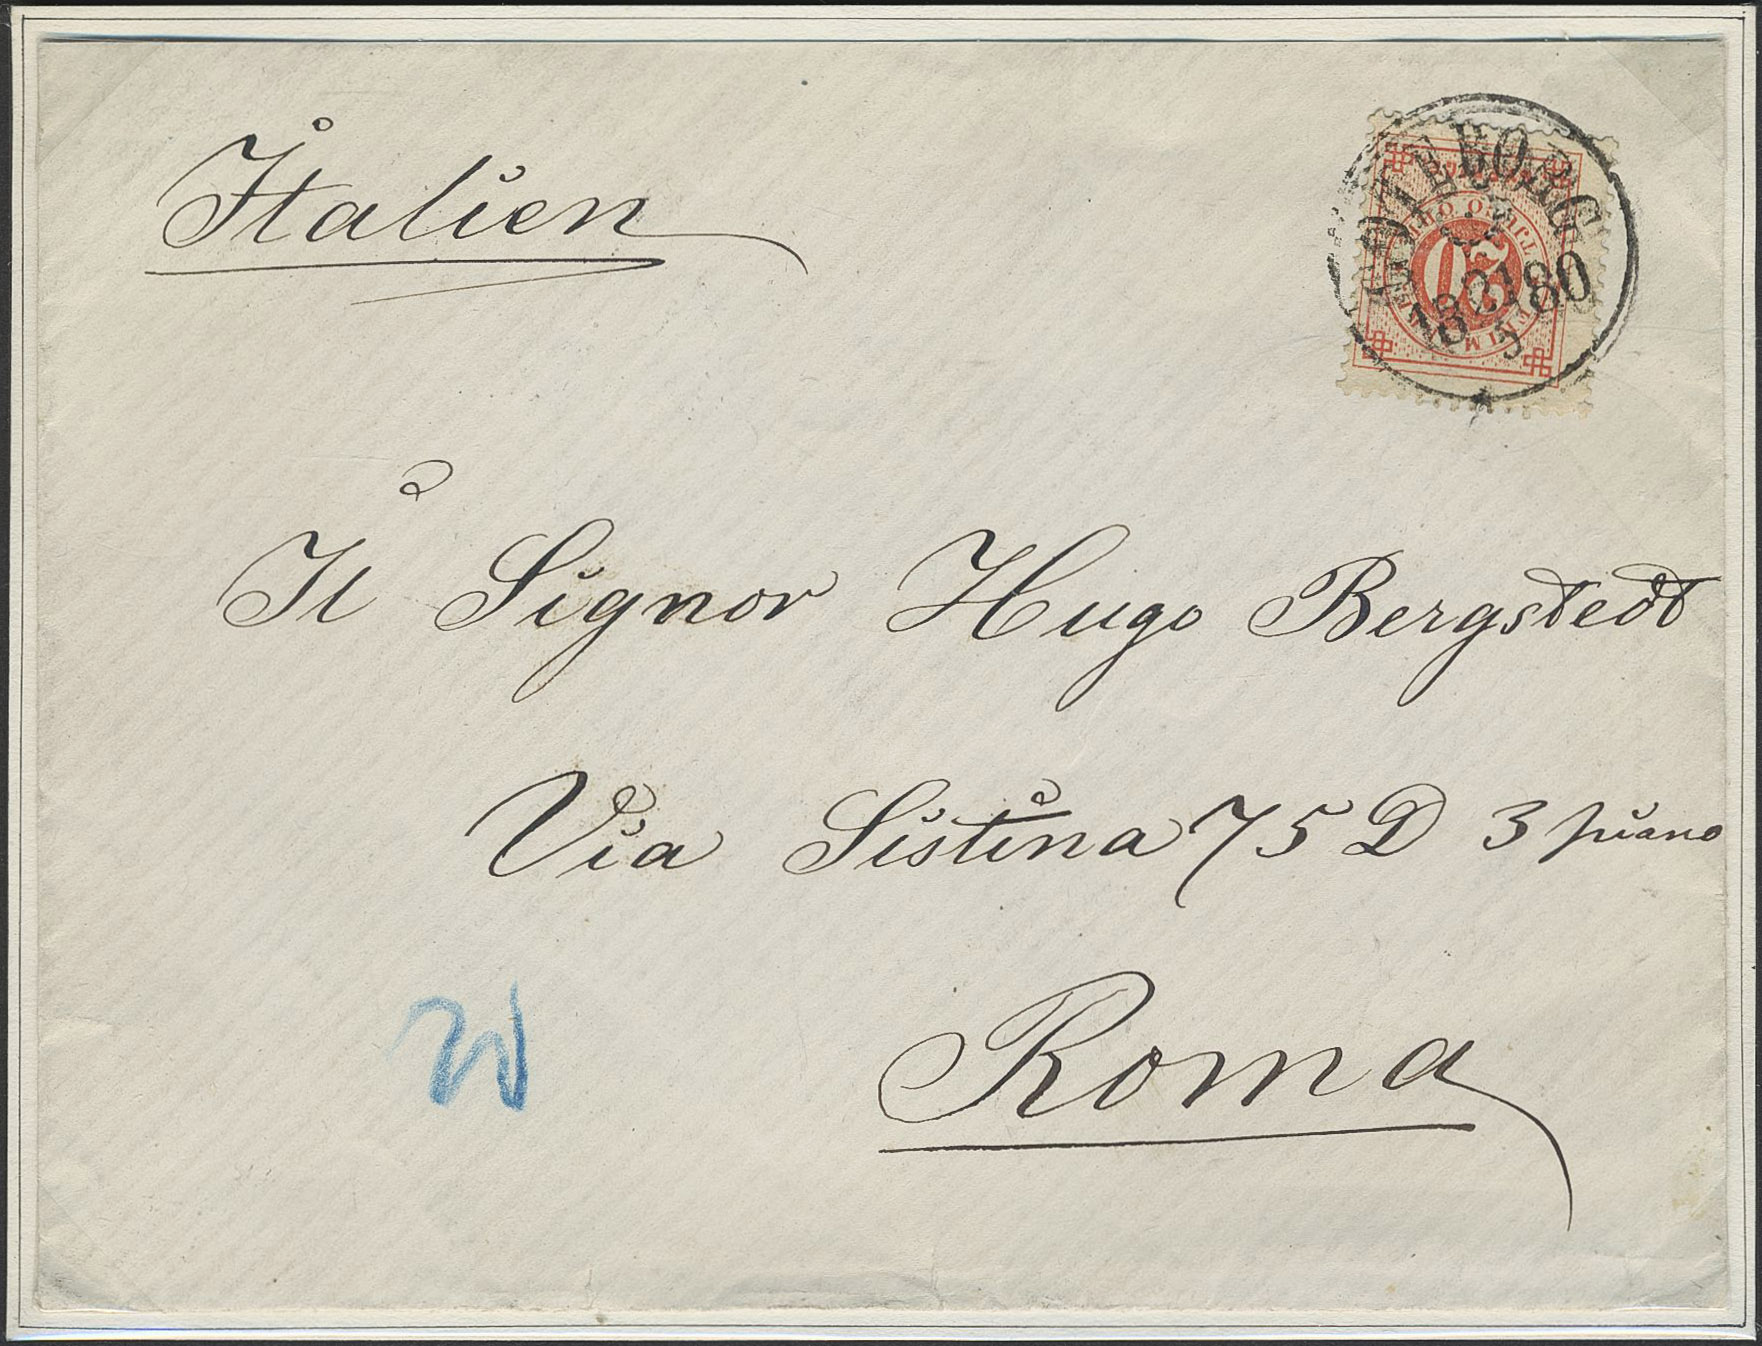 Italien
GÖTEBORG
13 1880
5
20
Il Signor Hugo Bergstedt
Via Sistina 75 D 3 piano
Roma